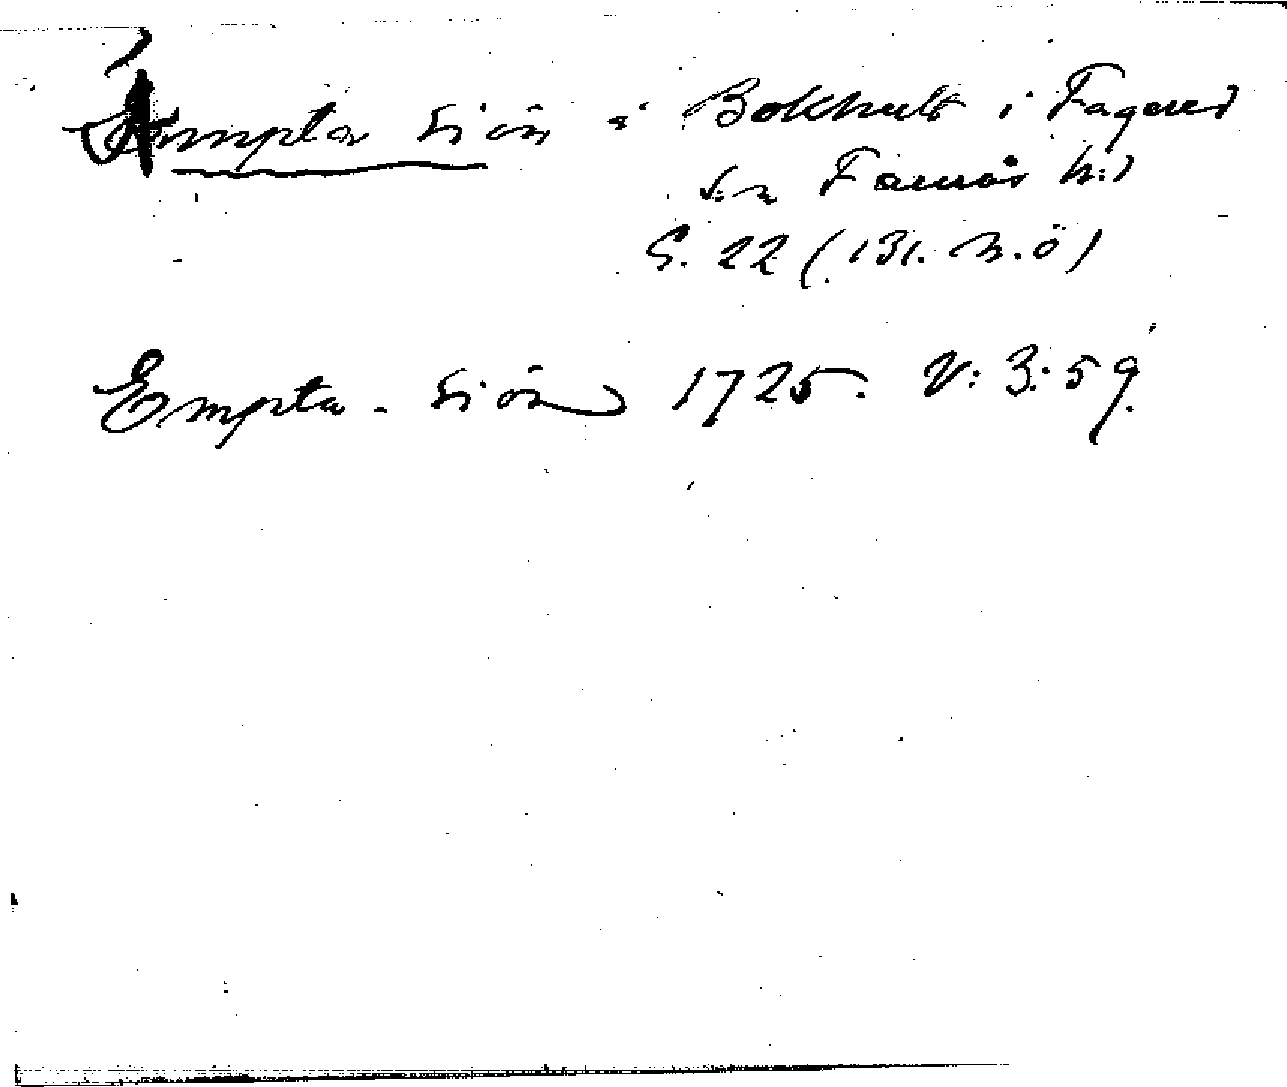 Ämpta siön i Bokhult i Fagered
s:n Faurås h:d
G. 22 (131. n. ö)
Empta-siön 1725. V: 3: 59.